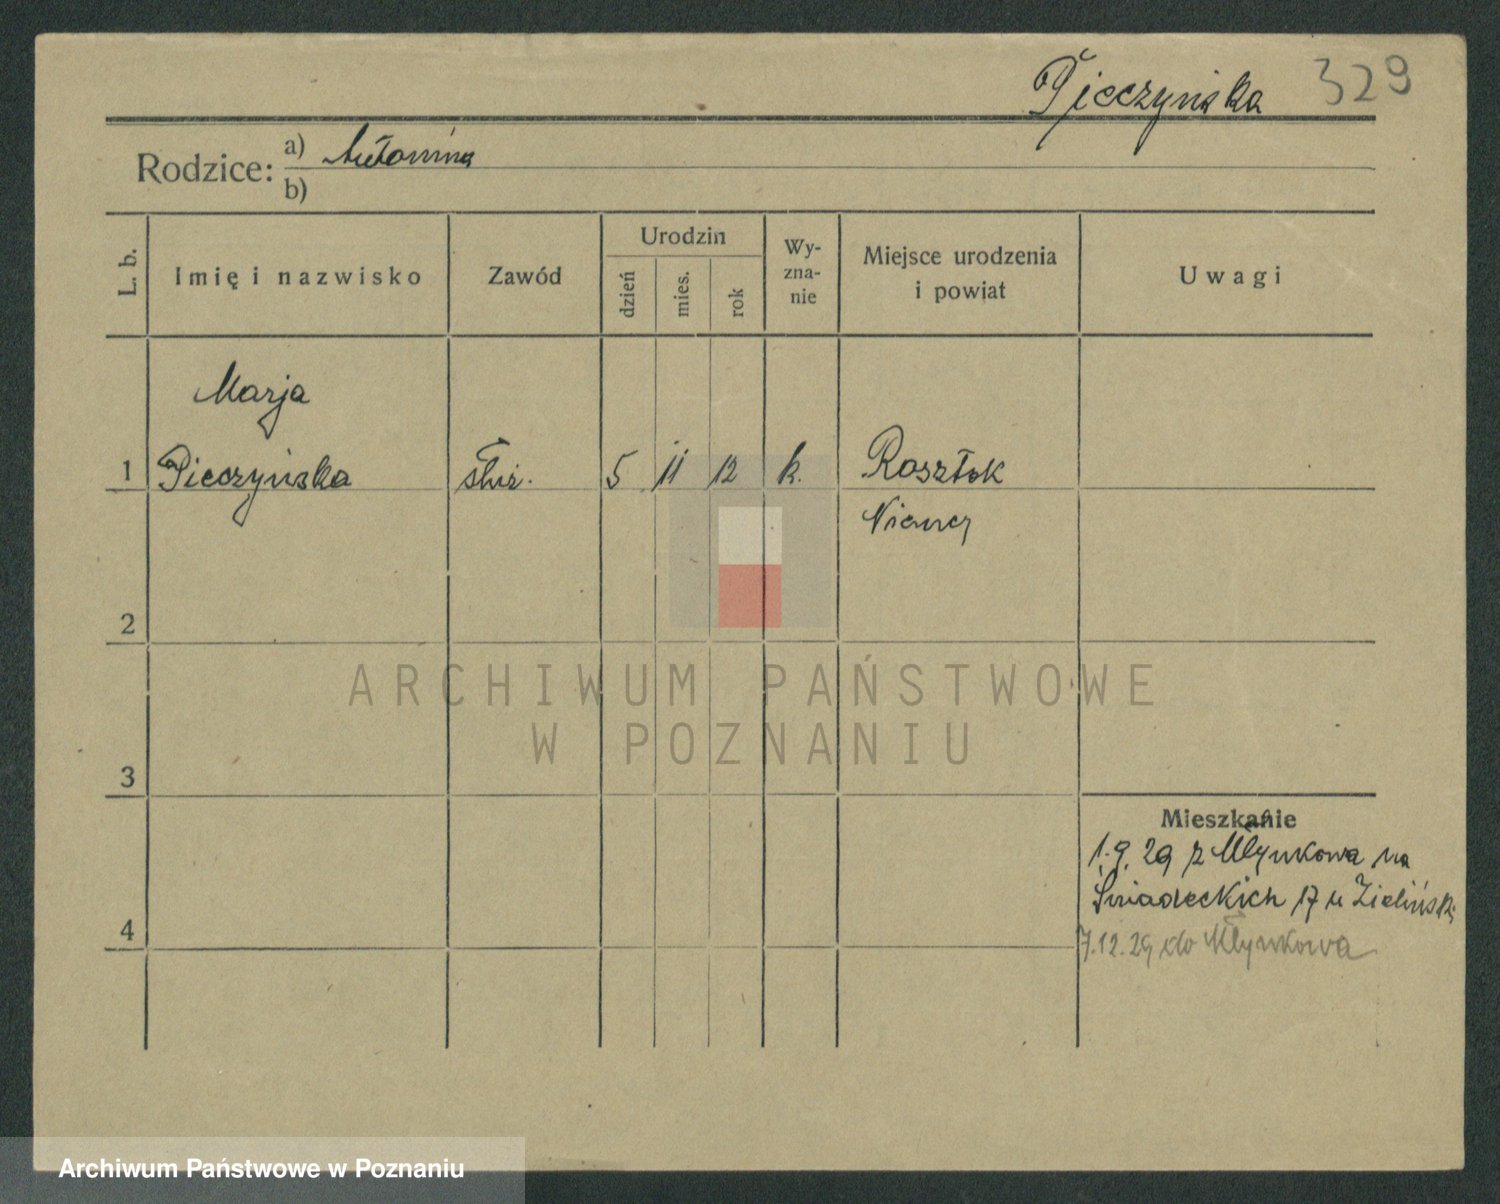 Pieczyńska 329
Rodzice: a) Antonina
b)
L. b.
Imię i nazwisko
Zawód
Urodzin
dzień
mies.
rok
Wy-
zna-
nie
Miejsce urodzenia
i powiat
Uwagi
Marja
1 Pieczyńska służ. 5 11 12 k. Rosztok
Niemcy
2
3
4
Mieszkanie
1.9.29 z Młynkowa na
Śniadeckich 17 u Zielińsk.
7.12.29 do Młynkowa
ARCHIWUM PAŃSTWOWE
W POZNANIU
Archiwum Państwowe w Poznaniu